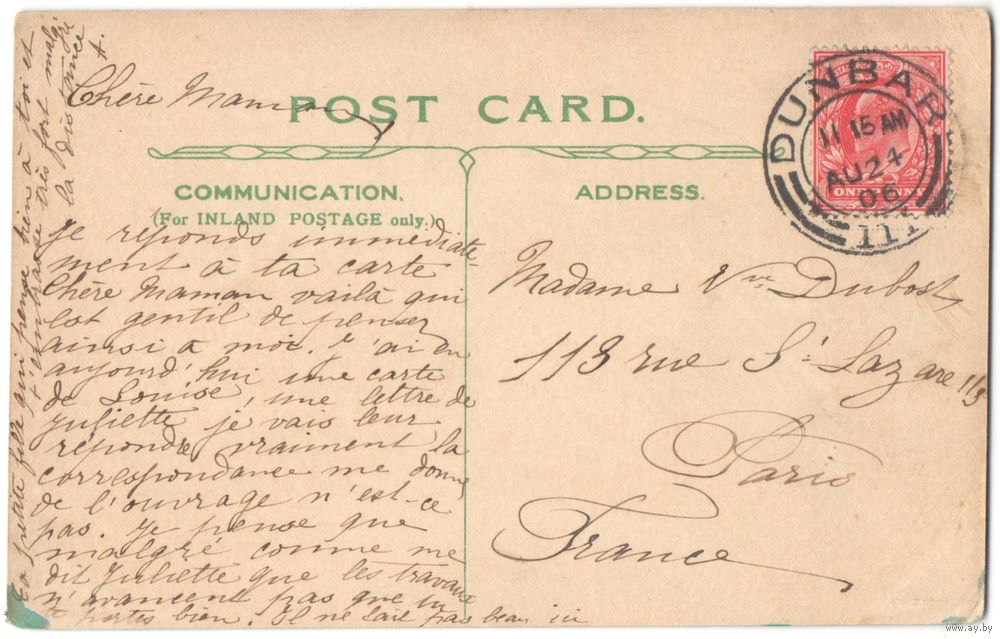 Chère Maman
POST CARD.
COMMUNICATION.
(For INLAND POSTAGE only.)
Je réponds immédiate-
ment à ta carte
Chère Maman voilà qui
est gentil de penser
ainsi à moi. J'ai eu
aujourd'hui une carte
de Louise, une lettre de
Juliette je vais leur
répondre vraiment la
correspondance me donne
de l'ouvrage n'est-ce
pas. Je pense que
malgré comme me
dit Juliette que les travaux
n'avancent pas que tu
te portes bien. Il ne fait pas beau ici
ta petite fille qui pense bien à toi et
t'embrasse très fort malgré
la distance
ADDRESS.
Madame Vve Dubost
113 rue St Lazare 113
Paris
France
DUNBAR
11 15 AM
AU 24
06
ONE PENNY
www.ay.by